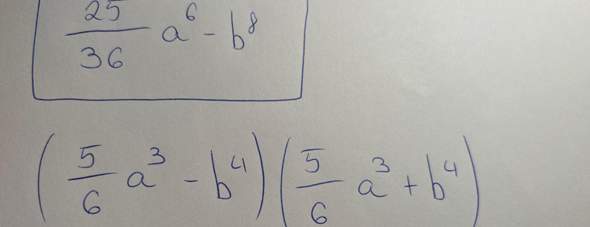 25/36 a⁶ - b⁸
(5/6 a³ - b⁴)(5/6 a³ + b⁴)